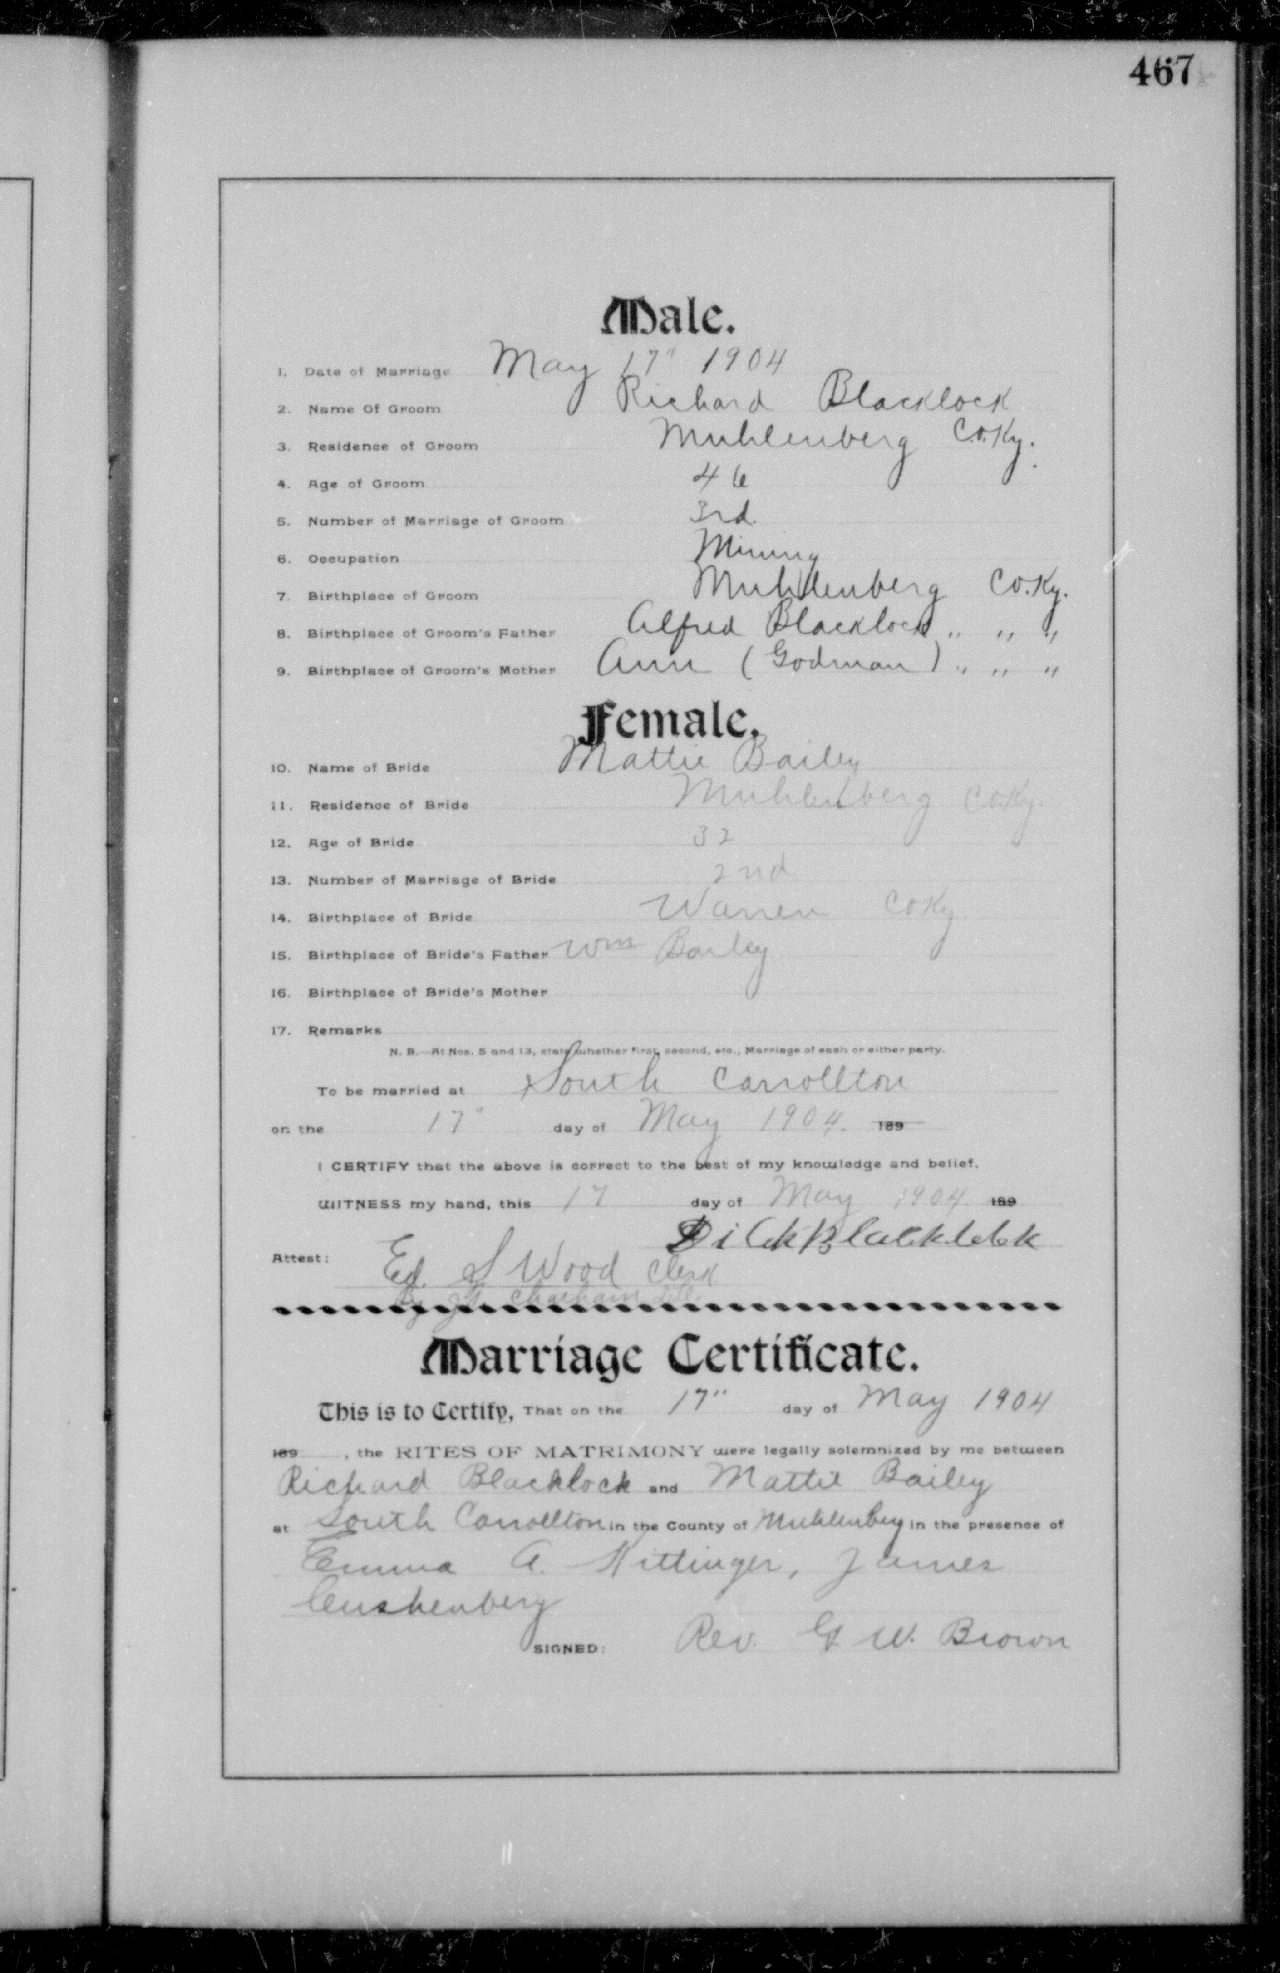 467
Male.
1. Date of Marriage May 17" 1904
2. Name Of Groom Richard Blacklock
3. Residence of Groom Muhlenberg Co. Ky.
4. Age of Groom 46
5. Number of Marriage of Groom 3rd.
6. Occupation Mining
7. Birthplace of Groom Muhlenberg Co. Ky.
8. Birthplace of Groom's Father Alfred Blacklock " " "
9. Birthplace of Groom's Mother Ann (Godman) " " "
Female.
10. Name of Bride Mattie Bailey
11. Residence of Bride Muhlenberg Co. Ky.
12. Age of Bride 32
13. Number of Marriage of Bride 2nd
14. Birthplace of Bride Warren Co Ky.
15. Birthplace of Bride's Father Wm Bailey
16. Birthplace of Bride's Mother
17. Remarks
N. B.—At Nos. 5 and 13, state whether first, second, etc., Marriage of each or either party.
To be married at South Carrollton
on the 17" day of May 1904. 189
I CERTIFY that the above is correct to the best of my knowledge and belief.
WITNESS my hand, this 17 day of May 1904 189
Dick Blacklock
Attest: Ed. S Wood Clerk
By Chatham
Marriage Certificate.
This is to Certify, That on the 17" day of May 1904
189 , the RITES OF MATRIMONY were legally solemnized by me between
Richard Blacklock and Mattie Bailey
at South Carrollton in the County of Muhlenberg in the presence of
Emma A. Kittinger, James
Cushenbery
SIGNED: Rev. G. W. Brown